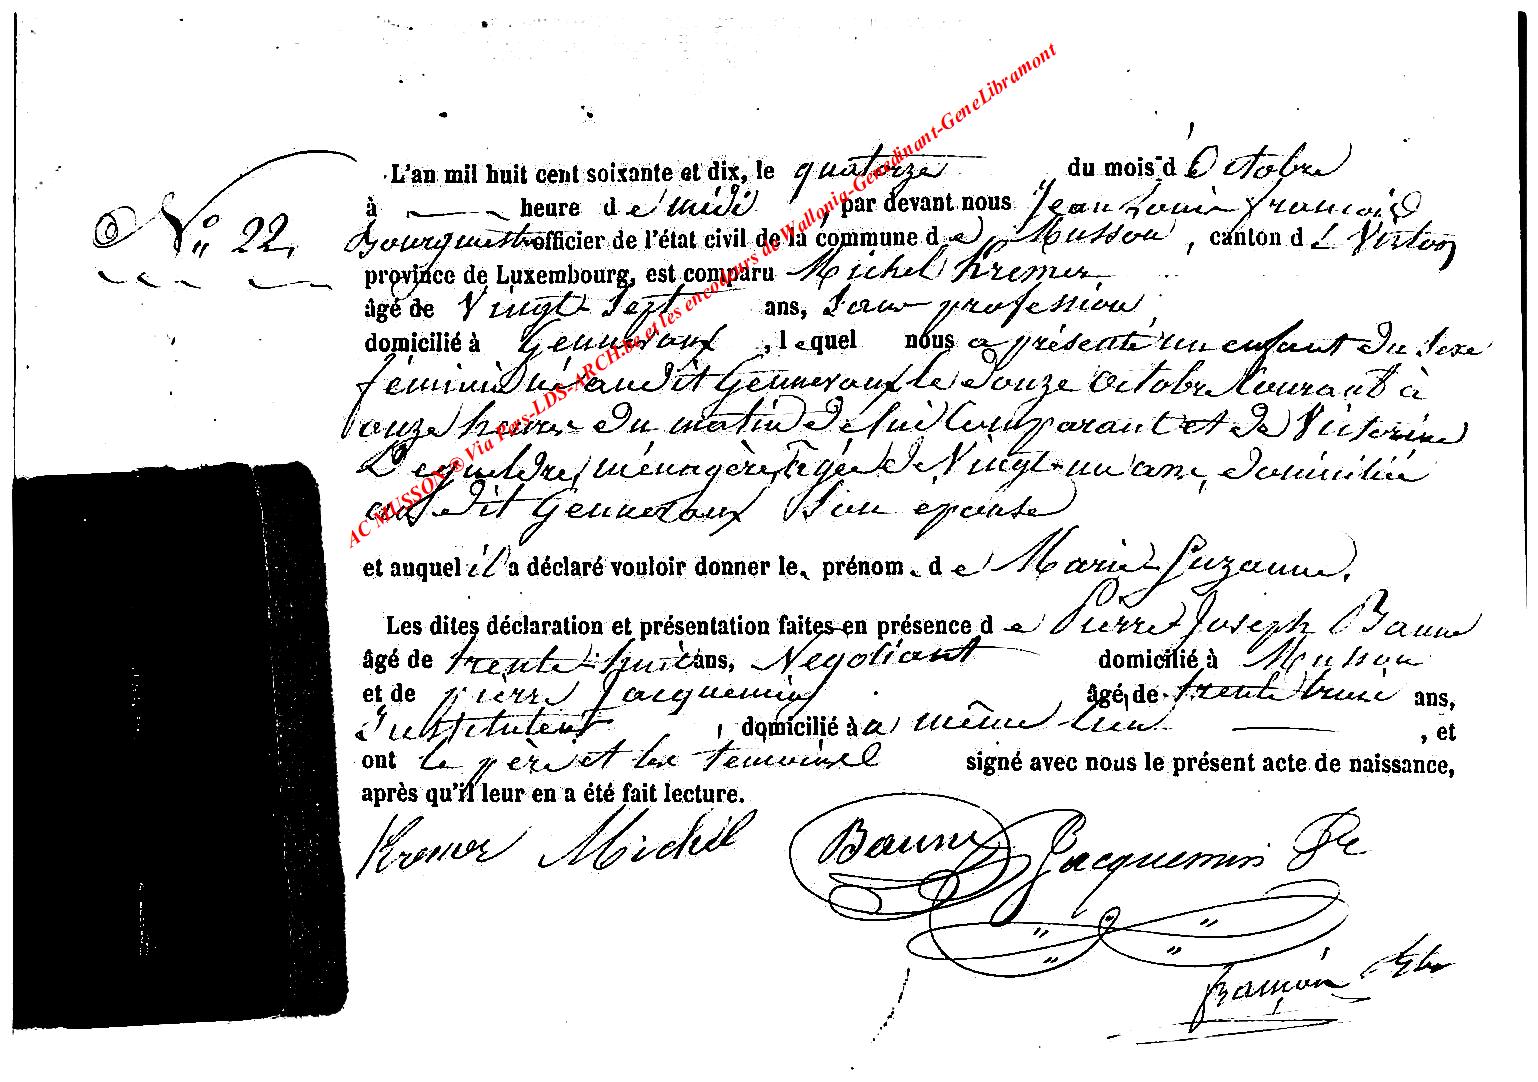 L'an mil huit cent soixante et dix, le quatorze du mois d'Octobre
N° 22. à heure de midi, par devant nous Jean Louis François
Bourguet officier de l'état civil de la commune de Musson, canton de Virton
province de Luxembourg, est comparu Michel Kremer
âgé de Vingt-Sept ans, Sans profession
domicilié à Gennevaux, lequel nous a présenté un enfant du Sexe
féminin né audit Gennevaux le douze Octobre Courant à
onze heures du matin de lui Comparant et de Victorine
ménagère, âgée de Vingt-un ans, domiciliée
audit Gennevaux Son épouse
et auquel il a déclaré vouloir donner le prénom de Marie Suzanne.
Les dites déclaration et présentation faites en présence de Pierre Joseph Baune
âgé de trente-huit ans, Négotiant domicilié à Musson
et de pierre Jacquemin âgé de trente trois ans,
Instituteur, domicilié à a même lieu, et
ont le père et les temoins signé avec nous le présent acte de naissance,
après qu'il leur en a été fait lecture.
Kremer Michel Baune Jacquemin Pre
françois
AC MUSSON ® Via Pars-LDS-ARCH.be et les encodeurs de Wallonia-Genedinant-GeneLibramont